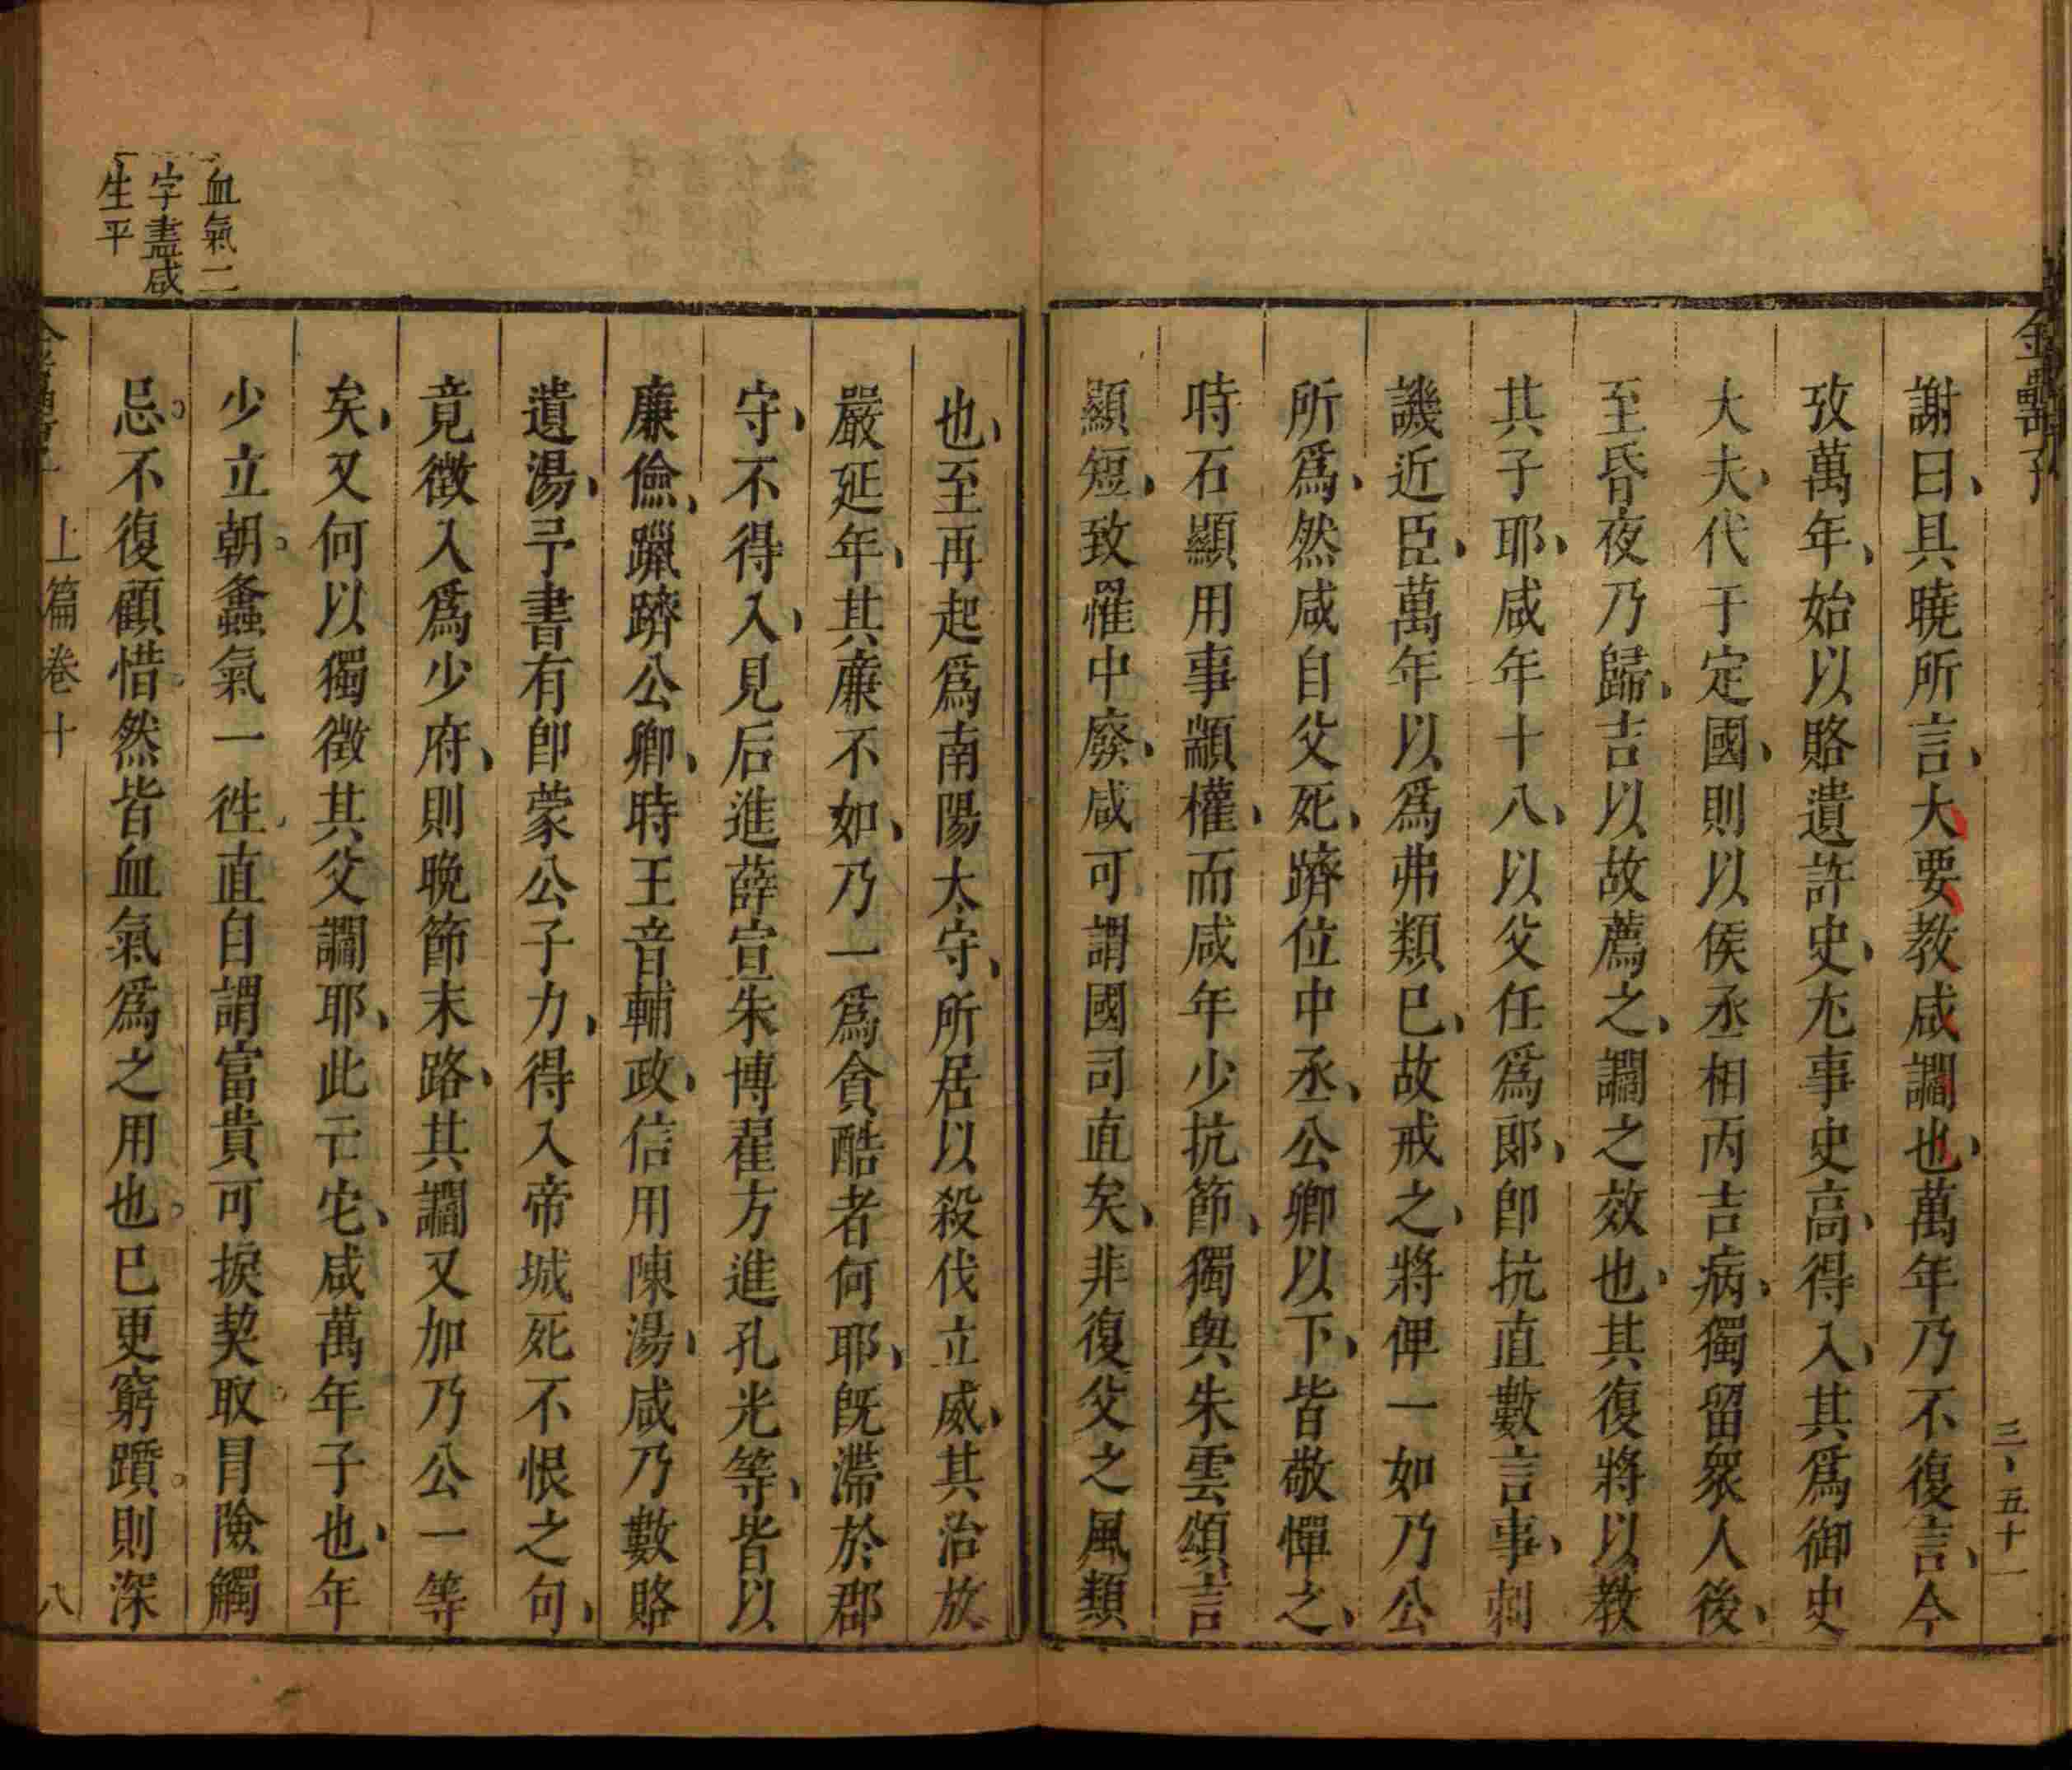 謝曰、具曉所言、大要教咸讇也、萬年乃不復言、今
攷萬年、始以賂遺許史、尢事史高、得入、其爲御史
大夫、代于定國、則以侯丞相丙吉病、獨留衆人後、
至昏夜乃歸、吉以故薦之、讇之效也、其復將以教
其子耶、咸年十八、以父任爲郞、卽抗直數言事、刺
譏近臣、萬年以爲弗類已、故戒之、將俾一如乃公
所爲、然咸自父死、躋位中丞、公卿以下、皆敬憚之、
時石顯用事顓權、而咸年少抗節、獨與朱雲頌言
顯短、致罹中廢、咸可謂國司直矣、非復父之風類
也、至再起爲南陽太守、所居以殺伐立威、其治放
嚴延年、其廉不如、乃一爲貪酷者何耶、旣滯於郡
守、不得入、見后進薛宣朱博翟方進孔光等、皆以
廉儉、躐躋公卿、時王音輔政、信用陳湯、咸乃數賂
遺湯、予書有卽蒙公子力、得入帝城死不恨之句、
竟徵入爲少府、則晚節末路、其讇又加乃公一等
矣、又何以獨徵其父讇耶、此亡它、咸萬年子也、年
少立朝。螽氣一徃、直自謂富貴可捩契取。冐險觸
忌。不復顧惜。然皆血氣爲之用也。巳更窮躓。則深
血氣二
字盡咸
生平
上篇卷十
八
三、五十一